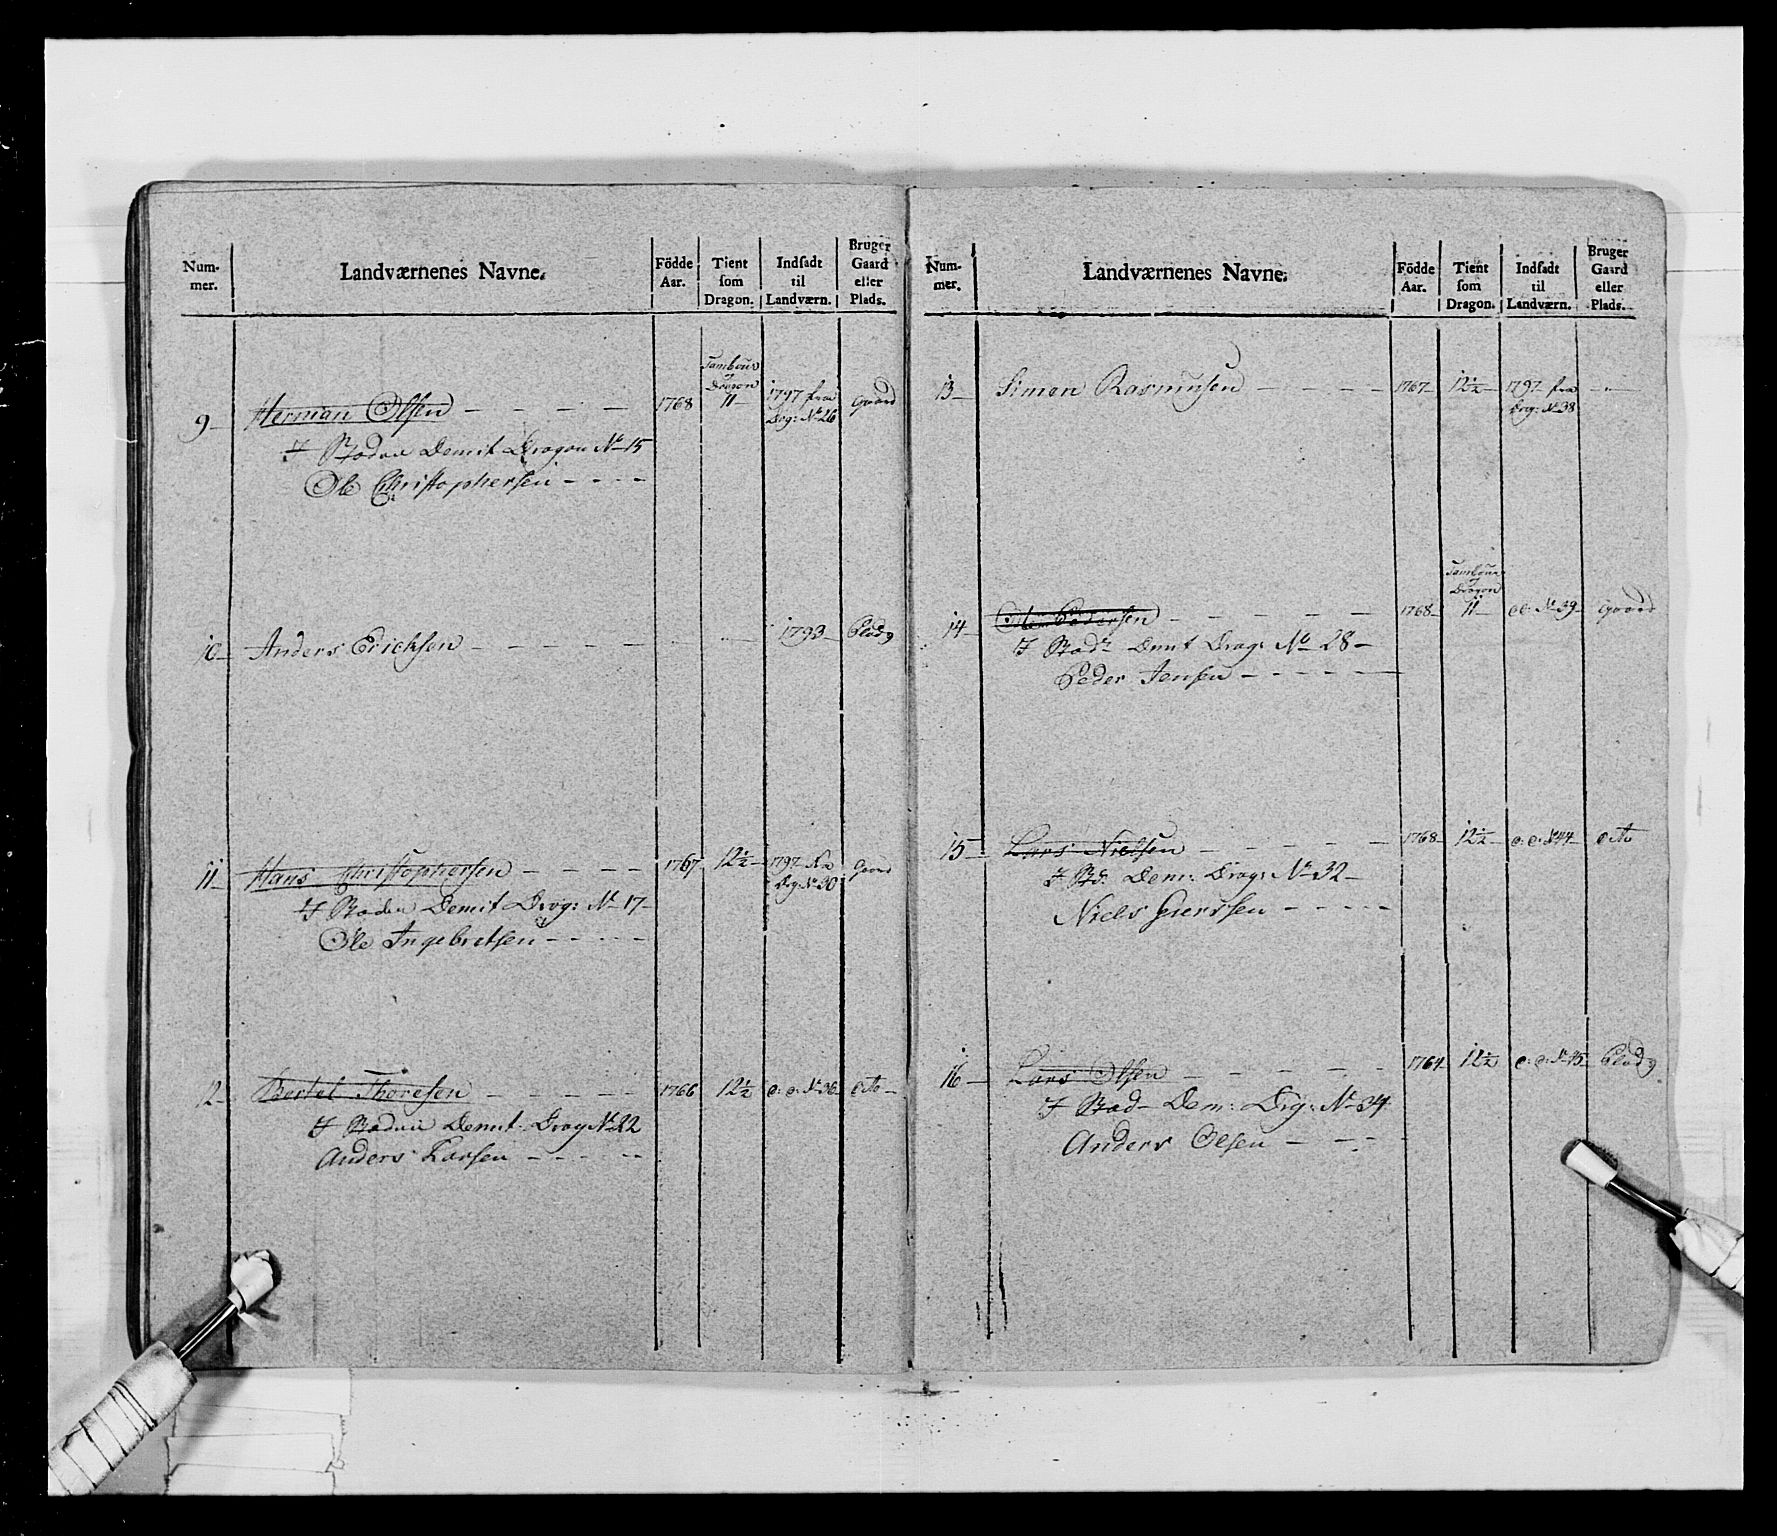 Num-
mer.
Landværnenes Navne.
Födde
Aar.
Tient
som
Dragon.
Indsadt
til
Landværn.
Bruger
Gaard
eller
Plads.
9-
Herman Olsen - - - - -
1768
Tambour
Dragon
11-
1797 fra
Drg: No 26
Gaard
I Staden Demit Dragon No 15
Ole Christophersen - - - -
10-
Anders Ericksen - - - - -
1793-
Plads
11-
Hans Christophersen - - - -
1767
12½-
1797 fra
Drg: No 30
Gaard
I Staden Demit Drag: No 17-
Ole Ingebretsen - - - - -
12-
Bertel Thoresen - - - - -
1766
12½
d: d: No 36
dito-
I Staden Demit Drag No 22
Anders Larsen - - - - -
Num-
mer.
Landværnenes Navne.
Födde
Aar.
Tient
som
Dragon.
Indsadt
til
Landværn.
Bruger
Gaard
eller
Plads.
13-
Simon Rasmusen - - - -
1767-
12½-
1797 fra
Drg: No 38
- " -
14-
Ole Pedersen - - - - -
1768-
Tambour
Dragon
11-
d d: No 39-
Gaard
I Stad: Demt Drag: No 28-
Peder Jensen - - - - -
15-
Lars Nielsen - - - - -
1768-
12½-
d: d: No 44-
dito
I Std: Dem: Drag: No 32-
Niels - - - - -
16-
Lars Olsen - - - - -
1764-
12½
d: d: No 45-
Plads
I Stad- Dem: Drg: No 34
Anders Olsen - - - -